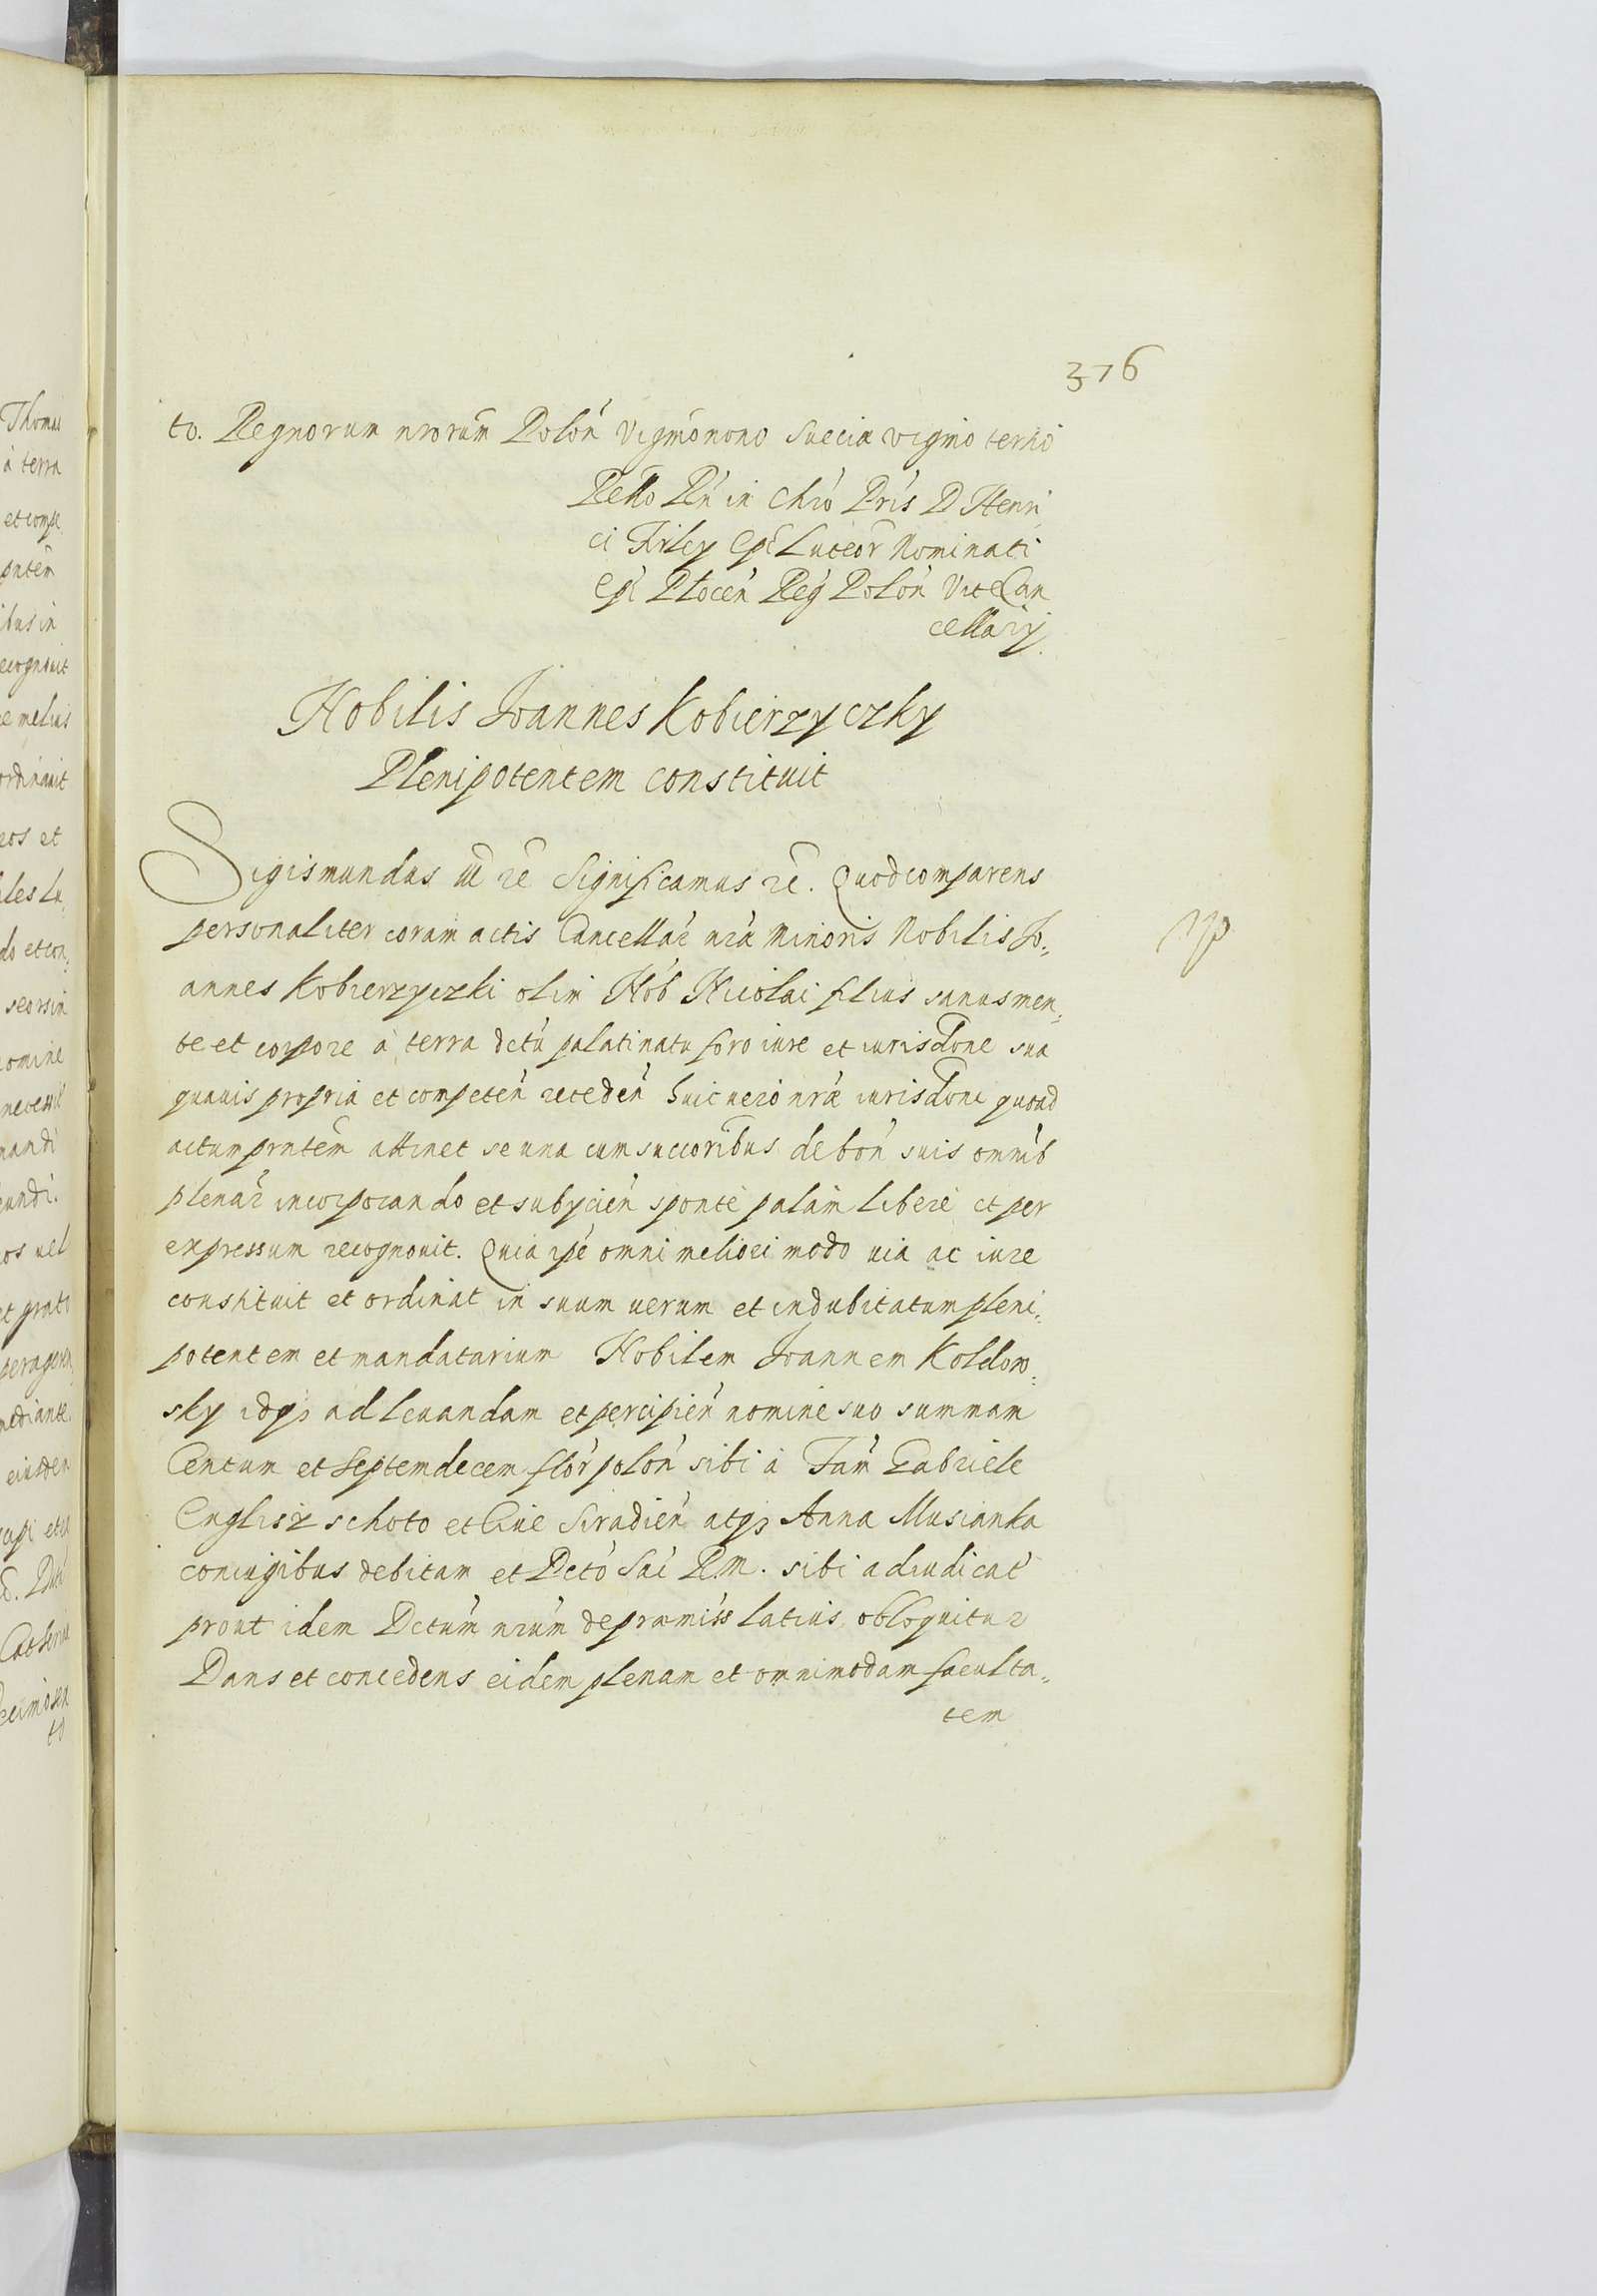 376
to. Regnorum nrorum Polon̄ Vigmonono Sueciæ vigmo terno
Rello Rn̄ in Chro Pris D Henri
ci Firley Epi Luceor̄ Nominati
Epi Plocen̄ Reg Polon̄ Vicecan
cellarij.
Nobilis Joannes Kobierzyczky
Plenipotentem constituit
Sigismundus III rc Significamus rc. Quod comparens
personaliter coram actis Cancellar nrā Minoris Nobilis Jo:
annes Kobierzyczki olim Nob Nicolai filius sanus men:
te et corpore à terra dctu palatinatu foro iure et iurisdone sua
quauis propria et competen̄ receden̄ huic uero nræ iurisdoni quoad
actum prntem attinet se una cum succoribus de bon̄ suis omnib
plenar incorporando et subycien̄ sponte palam libere et per
expressum recognouit. Quia ipe omni meliori modo uia ac iure
constituit et ordinat in suum uerum et indubitatum pleni:
potentem et mandatarium Nobilem Joannem Koldow:
sky idqз ad leuandam et percipien̄ nomine suo summam
Centum et Septemdecem flor polon̄ sibi à Fam̄ Gabriele
Englisz schoto et Ciue Siradien̄ atqз Anna Musianka
coniugibus debitam et Dcto Sac R.M. sibi adiudicat
prout idem Dctum nrum de præmiss latius obloquitur
Dans et concedens eidem plenam et omnimodam faculta:
tem
Thomas
à terra
et comp
pntem
ibus in
ecognouit
e melius
ordinauit
eos et
do et con:
seorsim
nomine
os uel
et grato
mediante
eiusdem
to